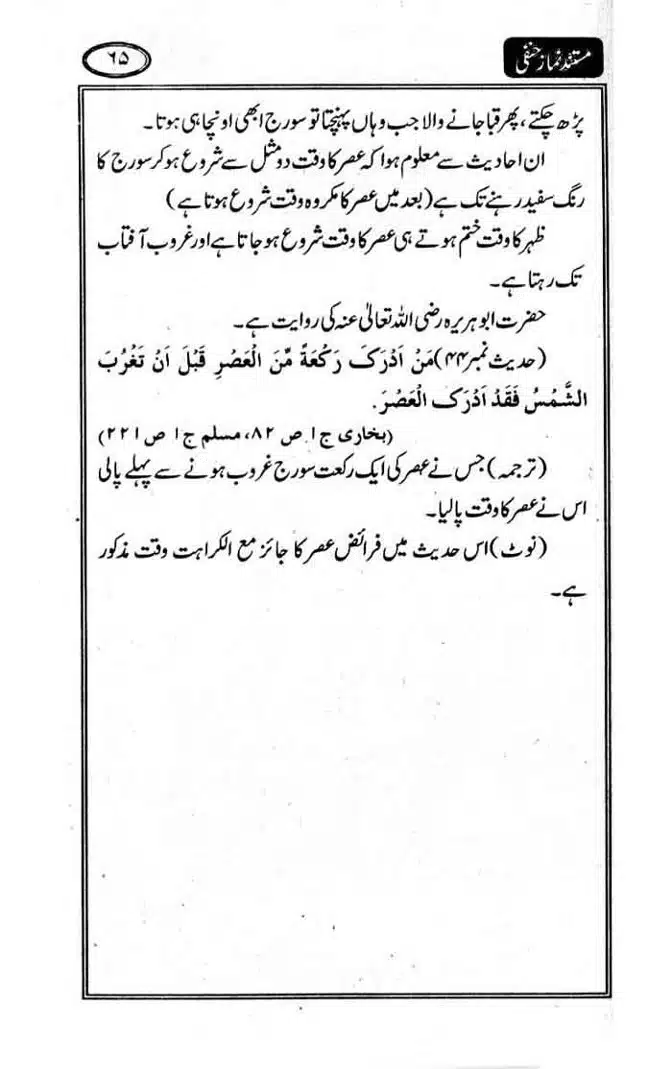 مستند نماز حنفی
۶۵
پڑھ چکتے، پھر قبا جانے والا جب وہاں پہنچتا تو سورج ابھی اونچا ہی ہوتا۔
ان احادیث سے معلوم ہوا کہ عصر کا وقت دو مثل سے شروع ہو کر سورج کا
رنگ سفید رہنے تک ہے (بعد میں عصر کا مکروہ وقت شروع ہوتا ہے)
ظہر کا وقت ختم ہوتے ہی عصر کا وقت شروع ہو جاتا ہے اور غروب آفتاب
تک رہتا ہے۔
حضرت ابو ہریرہ رضی اللہ تعالیٰ عنہ کی روایت ہے۔
(حدیث نمبر ۴۴) مَنْ اَدْرَکَ رَکْعَةً مِّنَ الْعَصْرِ قَبْلَ اَنْ تَغْرُبَ
الشَّمْسُ فَقَدْ اَدْرَکَ الْعَصْرَ۔
(بخاری ج ۱ ص ۸۲، مسلم ج ۱ ص ۲۲۱)
(ترجمہ) جس نے عصر کی ایک رکعت سورج غروب ہونے سے پہلے پالی
اس نے عصر کا وقت پالیا۔
(نوٹ) اس حدیث میں فرائض عصر کا جائز مع الکراہت وقت مذکور
ہے۔